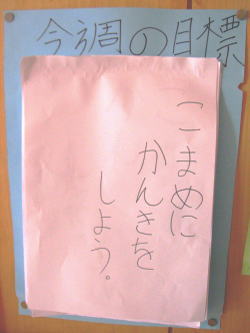 今週の目標
こまめに
かんきを
しよう。